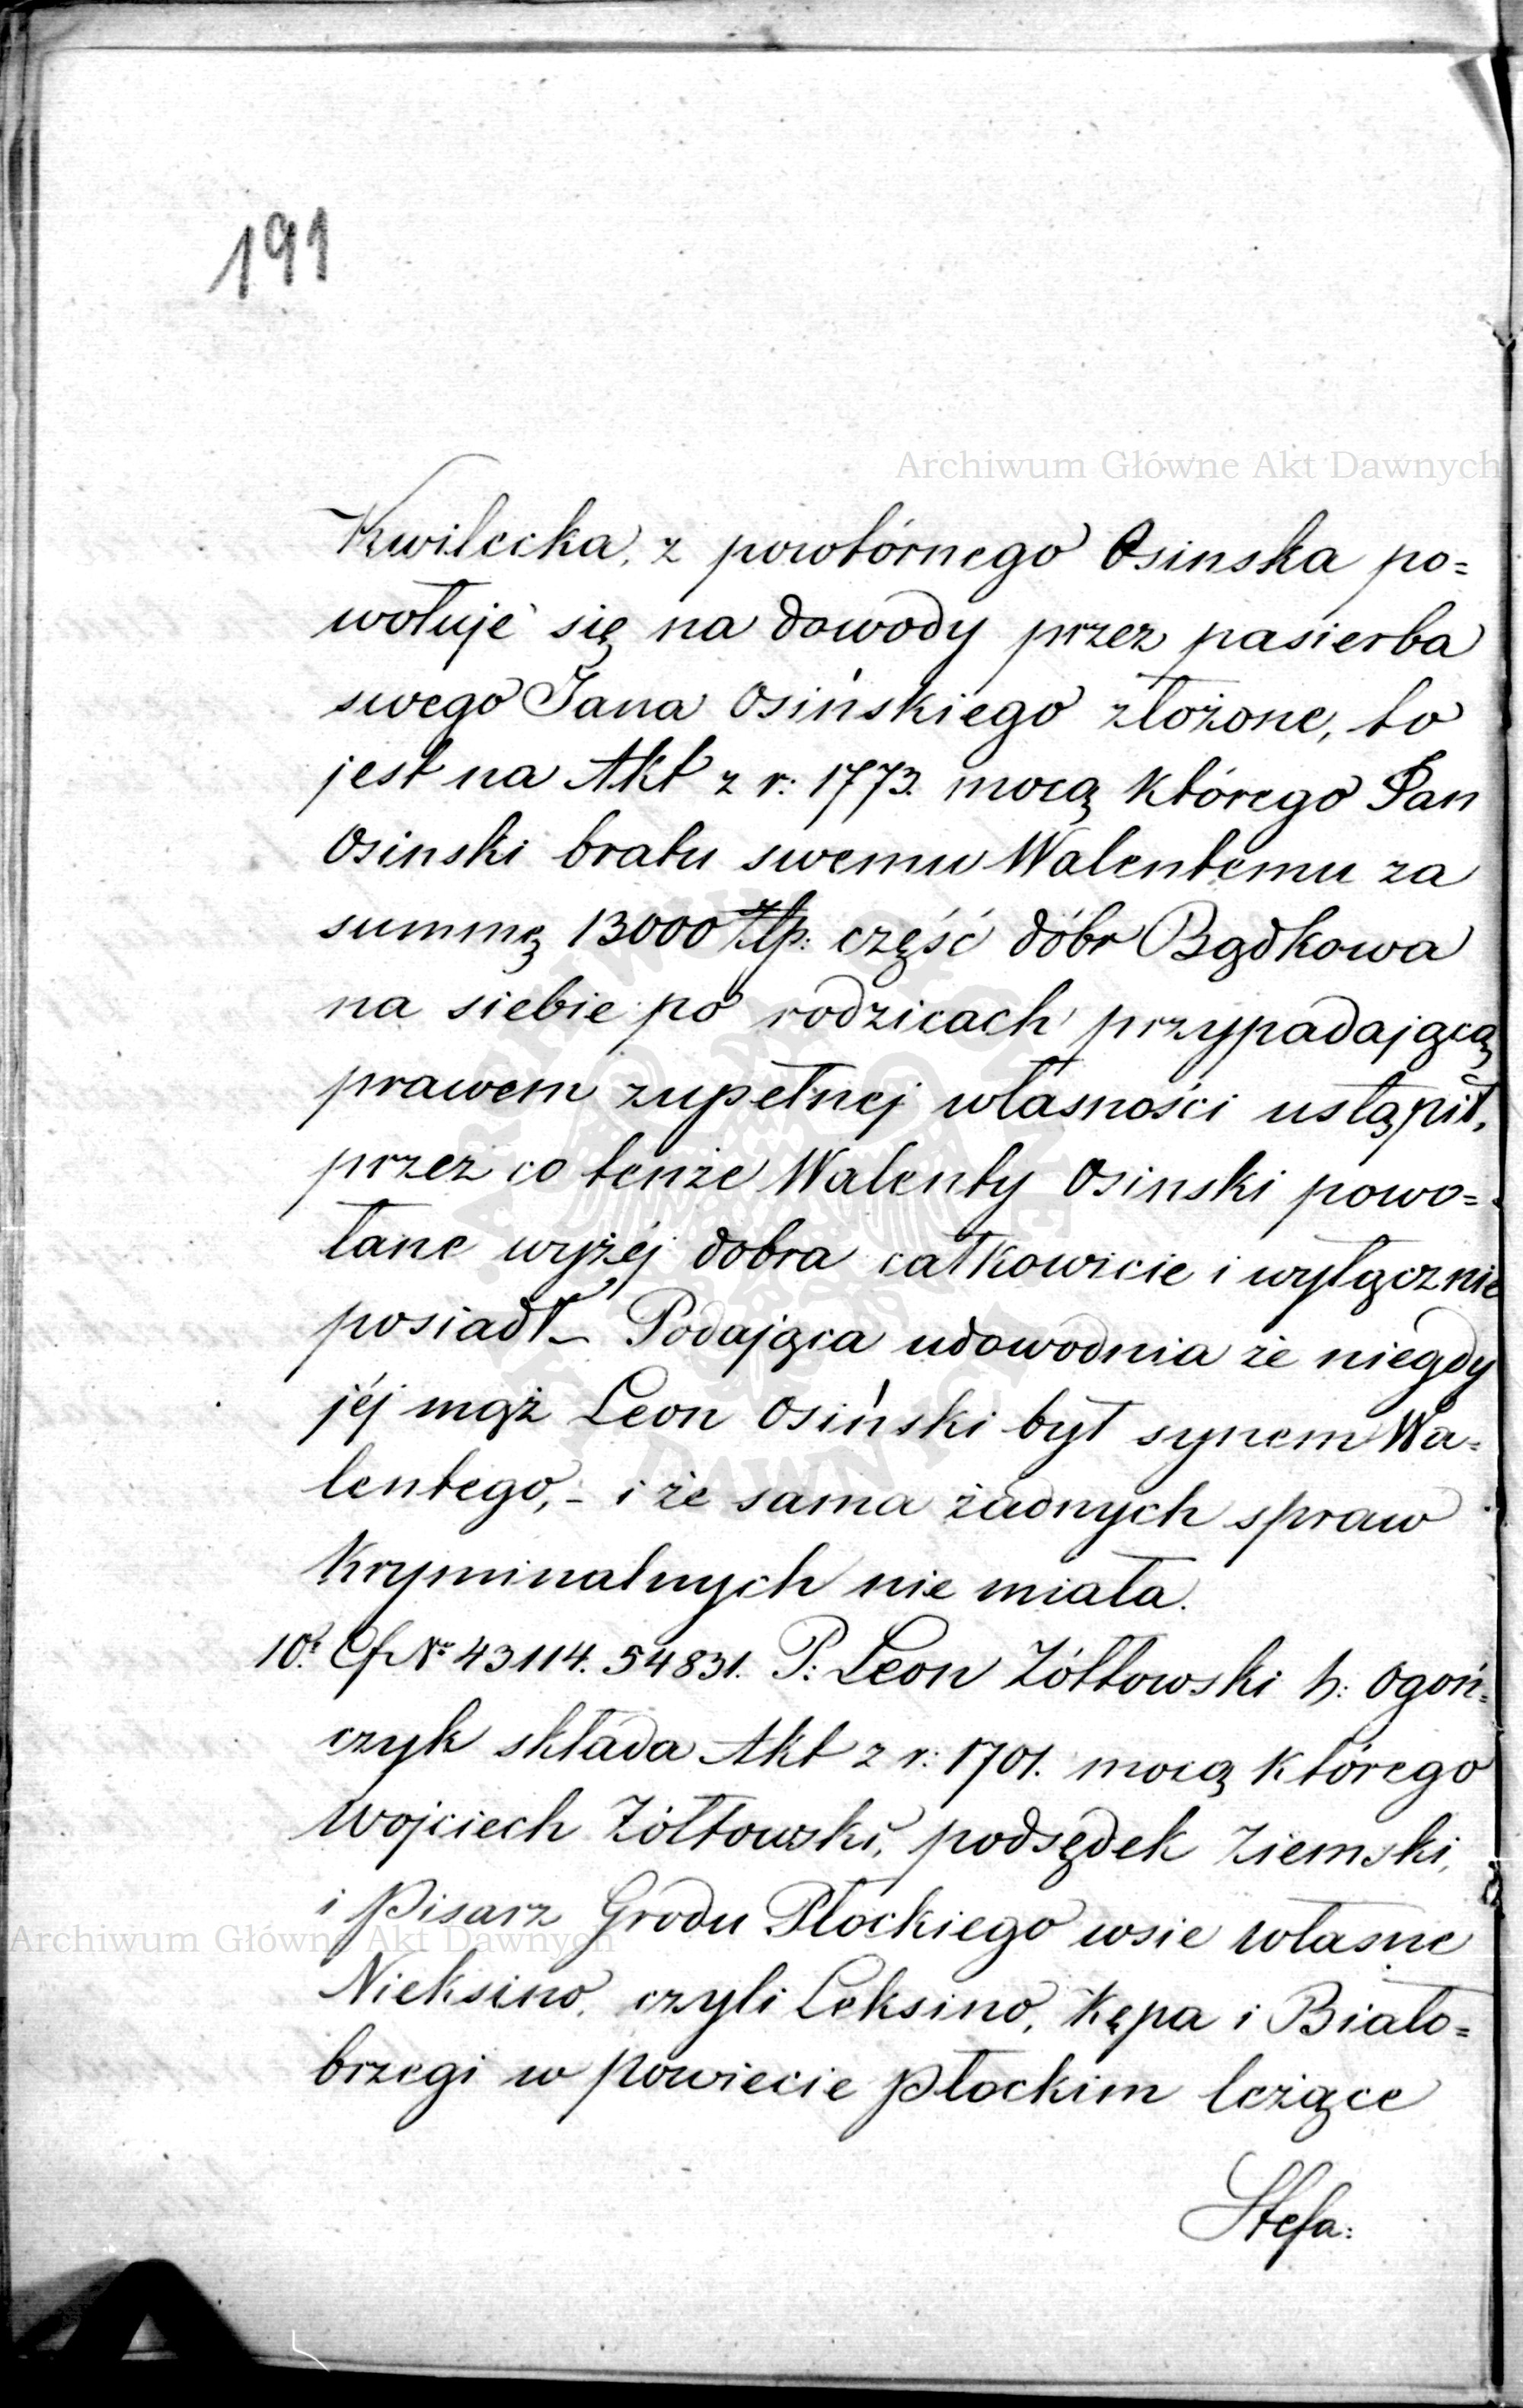 191
Archiwum Główne Akt Dawnych
Kwilecka, z powtórnego Osinska po=
wołuje się na dowody przez pasierba
swego Jana Osińskiego złożone, to
jest na Akt z r: 1773. mocą którego Jan
Osinski bratu swemu Walentemu za
summę 13000 Złp: część dóbr Bądkowa
na siebie po rodzicach przypadającą
prawem zupełnej własności ustąpił,
przez co tenże Walenty Osinski powo=
łane wyżéj dobra całkowicie i wyłącznie
posiadł_ Podająca udowodnia że niegdy
jéj mąż Leon Osiński był synem Wa=
lentego,- i że sama żadnych spraw
Kryminalnych nie miała.
10. Cf. Nr 43114. 54831. P: Leon Żółtowski h: Ogoń=
czyk składa Akt z r: 1701. mocą którego
Wojciech Żółtowski, podsędek Ziemski,
i Pisarz Grodu Płockiego wsie własne
Archiwum Główne Akt Dawnych
Nieksino, czyli Leksino, Kępa i Biało=
brzegi w powiecie Płockim leżące
Stefa: